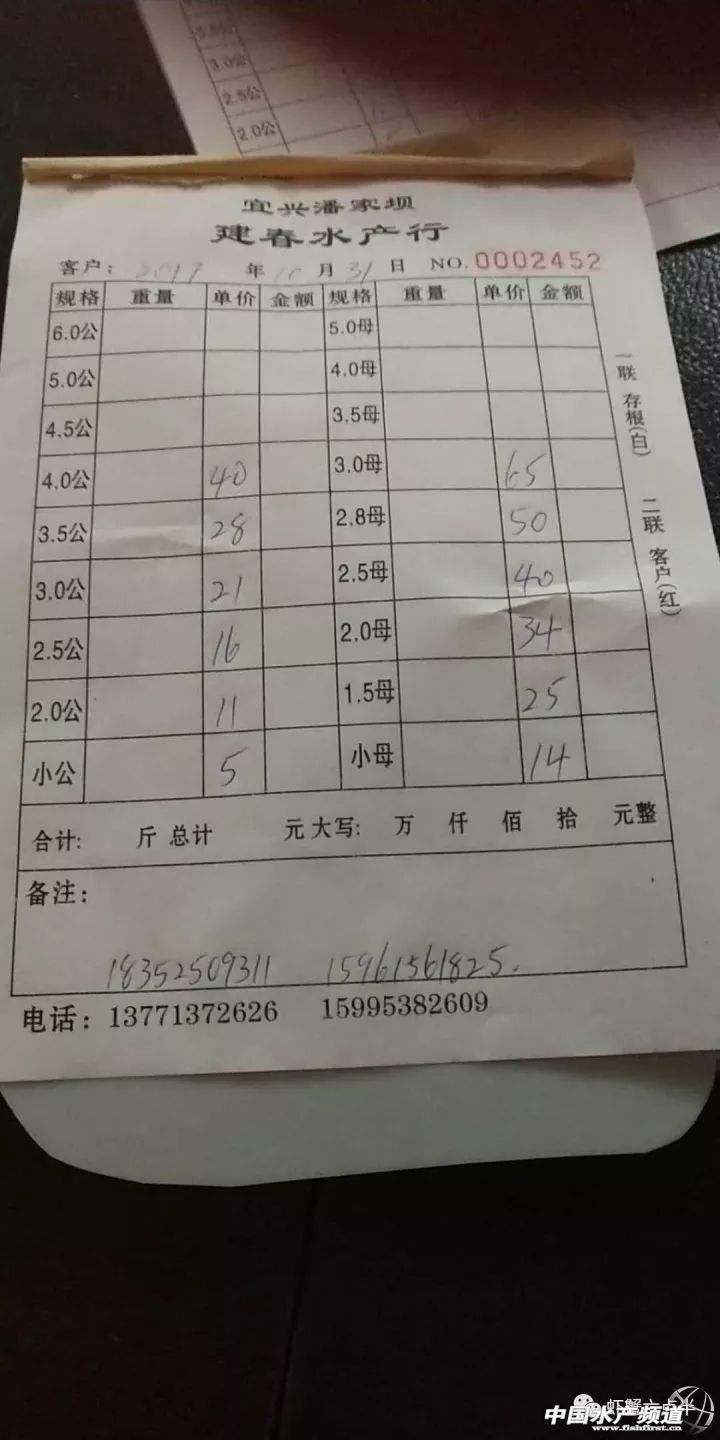 3.0公
2.5公
2.0公
宜兴潘家坝
建春水产行
客户: 2019 年 10 月 31 日 NO. 0002452
规格 重量 单价 金额 规格 重量 单价 金额
6.0公 5.0母
5.0公 4.0母
4.5公 3.5母
4.0公 40 3.0母 65
3.5公 28 2.8母 50
3.0公 21 2.5母 40
2.5公 16 2.0母 34
2.0公 11 1.5母 25
小公 5 小母 14
合计: 斤 总计 元 大写: 万 仟 佰 拾 元整
备注:
18352509311 15961561825.
电话: 13771372626 15995382609
一联 存根(白) 二联 客户(红)
虾蟹六点半
中国水产频道
www.fishfirst.cn